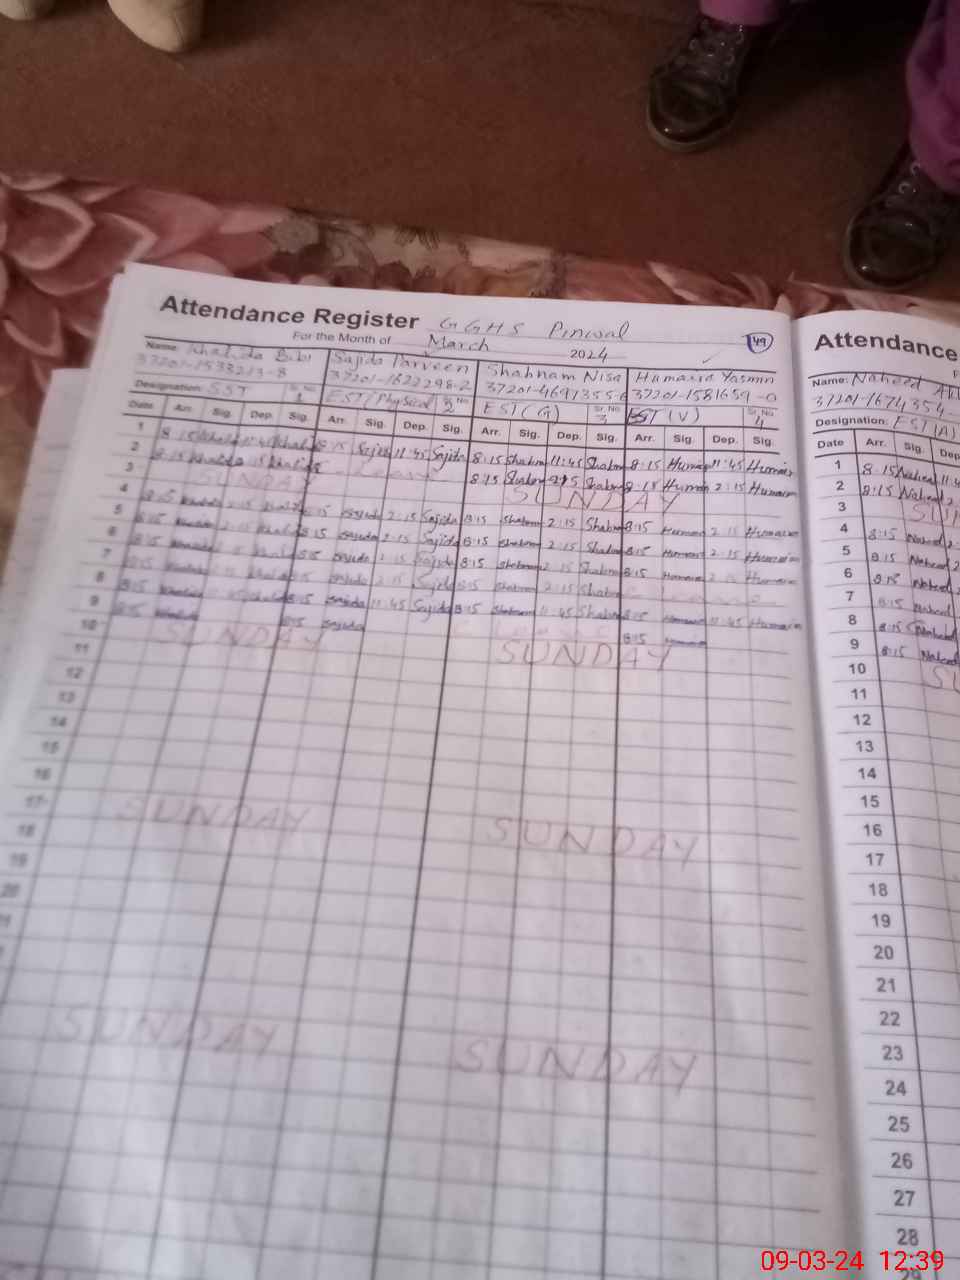 Attendance Register GGHS Pinwal
For the Month of March 2024
49
Name: Khalida Bibi Sajida Parveen Shabnam Nisa Humaira Yasmin
37201-1622298-2 37201-4691355-6 37201-1581659-0
Designation: SST Sr.No 1 EST/Physical Sr.No 2 EST(G) Sr.No 3 EST(V) Sr.No 4
Date Arr. Sig. Dep. Sig. Arr. Sig. Dep. Sig. Arr. Sig. Dep. Sig. Arr. Sig. Dep. Sig.
1 8:15 Khalida 11:45 Khalida 8:15 Sajida 11:45 Sajida 8:15 Shabnam 11:45 Shabnam 8:15 Humaira 11:45 Humaira
2 8:15 Khalida 2:15 Khalida 8:15 Shabnam 2:15 Shabnam 8:15 Humaira 2:15 Humaira
3 SUNDAY SUNDAY
4 8:15 Khalida 2:15 Khalida 8:15 Sajida 2:15 Sajida 8:15 Shabnam 2:15 Shabnam 8:15 Humaira 2:15 Humaira
5 8:15 Khalida 2:15 Khalida 8:15 Sajida 2:15 Sajida 8:15 Shabnam 2:15 Shabnam 8:15 Humaira 2:15 Humaira
6 8:15 Khalida 2:15 Khalida 8:15 Sajida 2:15 Sajida 8:15 Shabnam 2:15 Shabnam 8:15 Humaira 2:15 Humaira
7 8:15 Khalida 2:15 Khalida 8:15 Sajida 2:15 Sajida 8:15 Shabnam 2:15 Shabnam
8 8:15 Khalida 11:45 Khalida 8:15 Sajida 11:45 Sajida 8:15 Shabnam 11:45 Shabnam 8:15 Humaira 11:45 Humaira
9 8:15 Khalida 8:15 Sajida C Leave 8:15 Humaira
10 SUNDAY SUNDAY
11
12
13
14
15
16
17 SUNDAY SUNDAY
18
19
20
SUNDAY SUNDAY
Attendance
Name: Naheed
37201-1674354-
Designation: EST(A)
Date Arr. Sig. Dep
1 8:15 Naheed 11:4
2 8:15 Naheed 2
3 SU
4 8:15 Naheed 2
5 8:15 Naheed 2
6 8:15 Naheed
7 8:15 Naheed
8 8:15 Naheed
9 8:15 Naheed
10 SU
11
12
13
14
15
16
17
18
19
20
21
22
23
24
25
26
27
28
29
09-03-24 12:39